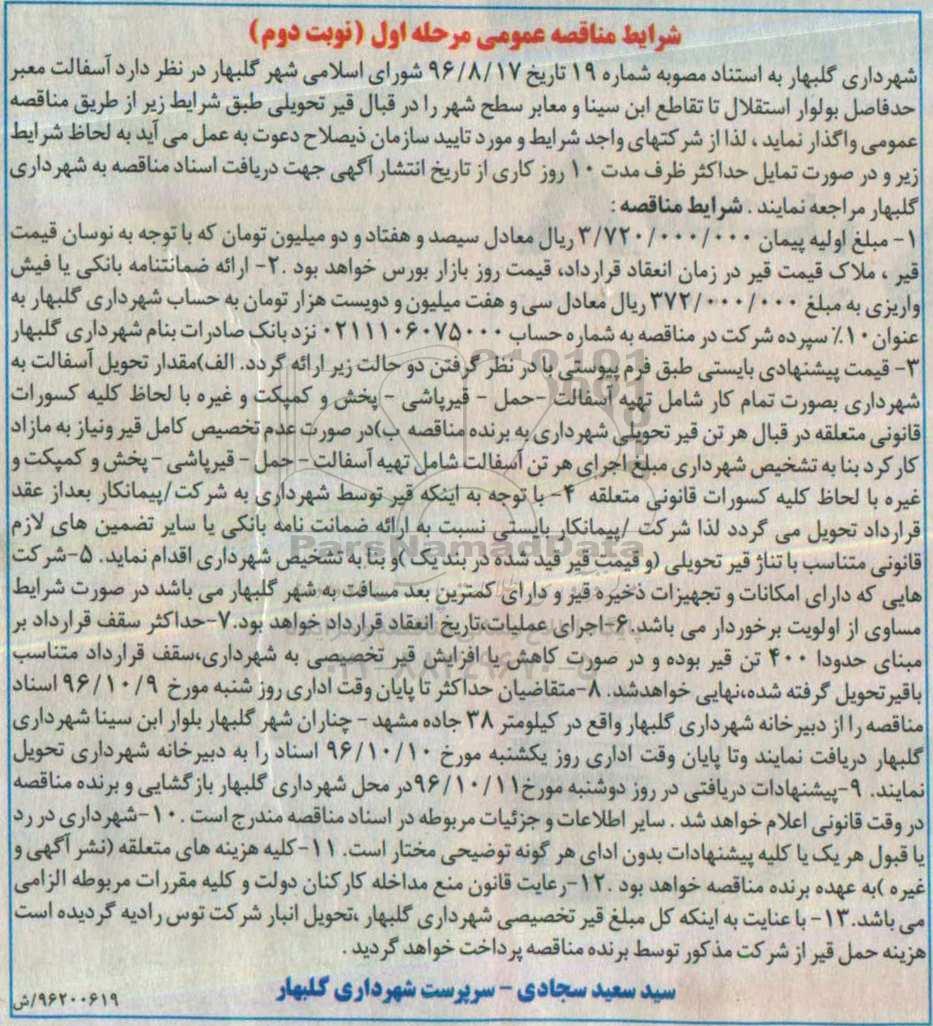 شرایط مناقصه عمومی مرحله اول (نوبت دوم)
شهرداری گلبهار به استناد مصوبه شماره ۱۹ تاریخ ۹۶/۸/۱۷ شورای اسلامی شهر گلبهار در نظر دارد آسفالت معبر
حدفاصل بولوار استقلال تا تقاطع ابن سینا و معابر سطح شهر را در قبال قیر تحویلی طبق شرایط زیر از طریق مناقصه
عمومی واگذار نماید ، لذا از شرکتهای واجد شرایط و مورد تایید سازمان ذیصلاح دعوت به عمل می آید به لحاظ شرایط
زیر و در صورت تمایل حداکثر ظرف مدت ۱۰ روز کاری از تاریخ انتشار آگهی جهت دریافت اسناد مناقصه به شهرداری
گلبهار مراجعه نمایند . شرایط مناقصه :
۱- مبلغ اولیه پیمان ۳/۷۲۰/۰۰۰/۰۰۰ ریال معادل سیصد و هفتاد و دو میلیون تومان که با توجه به نوسان قیمت
قیر ، ملاک قیمت قیر در زمان انعقاد قرارداد، قیمت روز بازار بورس خواهد بود .۲- ارائه ضمانتنامه بانکی یا فیش
واریزی به مبلغ ۳۷۲/۰۰۰/۰۰۰ ریال معادل سی و هفت میلیون و دویست هزار تومان به حساب شهرداری گلبهار به
عنوان ۱۰٪ سپرده شرکت در مناقصه به شماره حساب ۰۲۱۱۱۰۶۰۷۵۰۰۰ نزد بانک صادرات بنام شهرداری گلبهار
۳- قیمت پیشنهادی بایستی طبق فرم پیوستی با در نظر گرفتن دو حالت زیر ارائه گردد. الف)مقدار تحویل آسفالت به
شهرداری بصورت تمام کار شامل تهیه آسفالت -حمل - قیرپاشی - پخش و کمپکت و غیره با لحاظ کلیه کسورات
قانونی متعلقه در قبال هر تن قیر تحویلی شهرداری به برنده مناقصه ب)در صورت عدم تخصیص کامل قیر ونیاز به مازاد
کارکرد بنا به تشخیص شهرداری مبلغ اجرای هر تن آسفالت شامل تهیه آسفالت - حمل - قیرپاشی - پخش و کمپکت و
غیره با لحاظ کلیه کسورات قانونی متعلقه ۴- با توجه به اینکه قیر توسط شهرداری به شرکت/پیمانکار بعداز عقد
قرارداد تحویل می گردد لذا شرکت /پیمانکار بایستی نسبت به ارائه ضمانت نامه بانکی یا سایر تضمین های لازم
قانونی متناسب با تناژ قیر تحویلی (و قیمت قیر قید شده در بند یک )و بنا به تشخیص شهرداری اقدام نماید. ۵-شرکت
هایی که دارای امکانات و تجهیزات ذخیره قیر و دارای کمترین بعد مسافت به شهر گلبهار می باشد در صورت شرایط
مساوی از اولویت برخوردار می باشد.۶-اجرای عملیات،تاریخ انعقاد قرارداد خواهد بود.۷-حداکثر سقف قرارداد بر
مبنای حدودا ۴۰۰ تن قیر بوده و در صورت کاهش یا افزایش قیر تخصیصی به شهرداری،سقف قرارداد متناسب
باقیرتحویل گرفته شده،نهایی خواهدشد. ۸-متقاضیان حداکثر تا پایان وقت اداری روز شنبه مورخ ۹۶/۱۰/۹ اسناد
مناقصه را از دبیرخانه شهرداری گلبهار واقع در کیلومتر ۳۸ جاده مشهد - چناران شهر گلبهار بلوار ابن سینا شهرداری
گلبهار دریافت نمایند وتا پایان وقت اداری روز یکشنبه مورخ ۹۶/۱۰/۱۰ اسناد را به دبیرخانه شهرداری تحویل
نمایند. ۹-پیشنهادات دریافتی در روز دوشنبه مورخ۹۶/۱۰/۱۱در محل شهرداری گلبهار بازگشایی و برنده مناقصه
در وقت قانونی اعلام خواهد شد . سایر اطلاعات و جزئیات مربوطه در اسناد مناقصه مندرج است .۱۰-شهرداری در رد
یا قبول هر یک یا کلیه پیشنهادات بدون ادای هر گونه توضیحی مختار است. ۱۱-کلیه هزینه های متعلقه (نشر آگهی و
غیره )به عهده برنده مناقصه خواهد بود .۱۲-رعایت قانون منع مداخله کارکنان دولت و کلیه مقررات مربوطه الزامی
می باشد.۱۳- با عنایت به اینکه کل مبلغ قیر تخصیصی شهرداری گلبهار ،تحویل انبار شرکت توس رادیه گردیده است
هزینه حمل قیر از شرکت مذکور توسط برنده مناقصه پرداخت خواهد گردید .
سید سعید سجادی - سرپرست شهرداری گلبهار
۹۶۲۰۰۶۱۹/ش
ParsNamadData